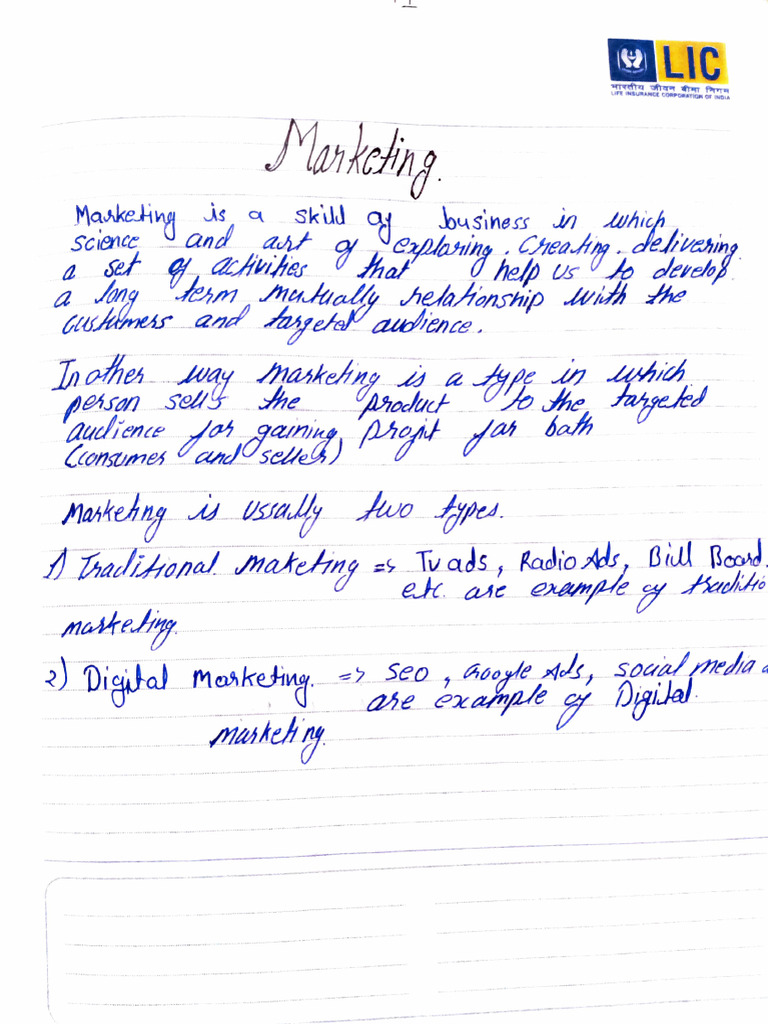 LIC
भारतीय जीवन बीमा निगम
LIFE INSURANCE CORPORATION OF INDIA
Marketing.
Marketing is a skill of business in which
science and art of exploring. Creating. delivering
a set of activities that help us to develop
a long term mutually relationship with the
custumers and targeted audience.
In other way marketing is a type in which
person sells the product to the targeted
audience for gaining profit for both
(consumer and seller)
Marketing is ussally two types.
1) Traditional. maketing => Tv ads, Radio Ads, Bill Board.
etc. are example of traditio
marketing.
2) Digital Marketing. => SEO, Google Ads, social media a
are example of Digital.
marketing.